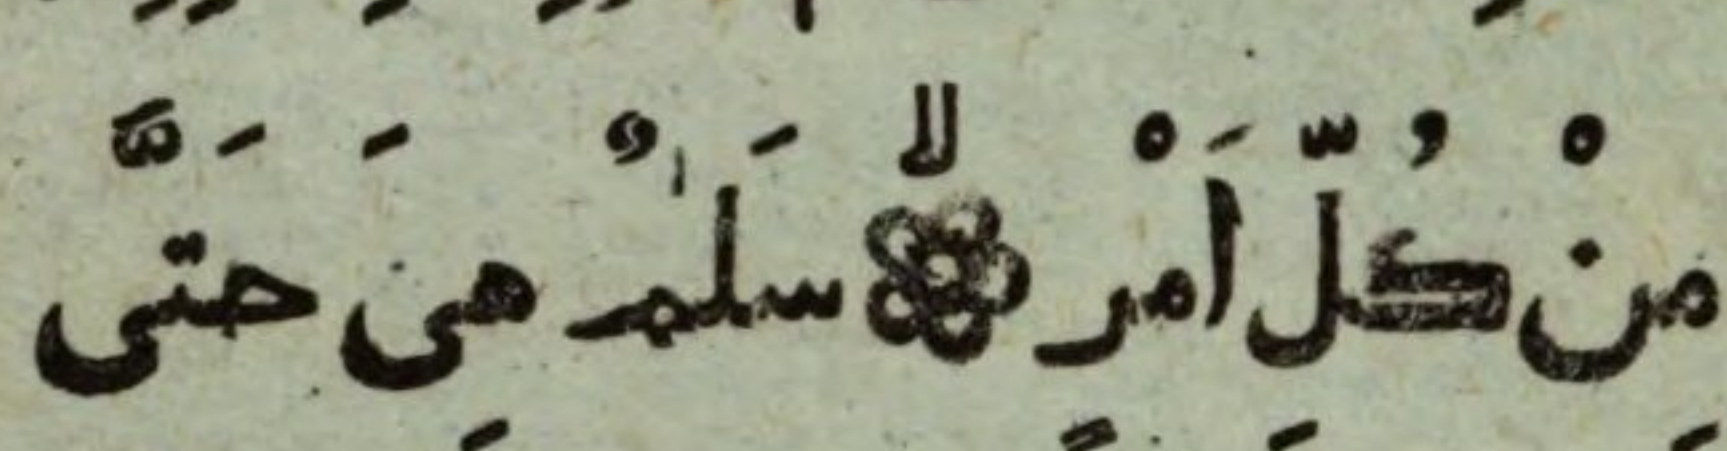 مِنْ كُلِّ اَمْرٍ ۙ سَلٰمٌ هِىَ حَتَّى